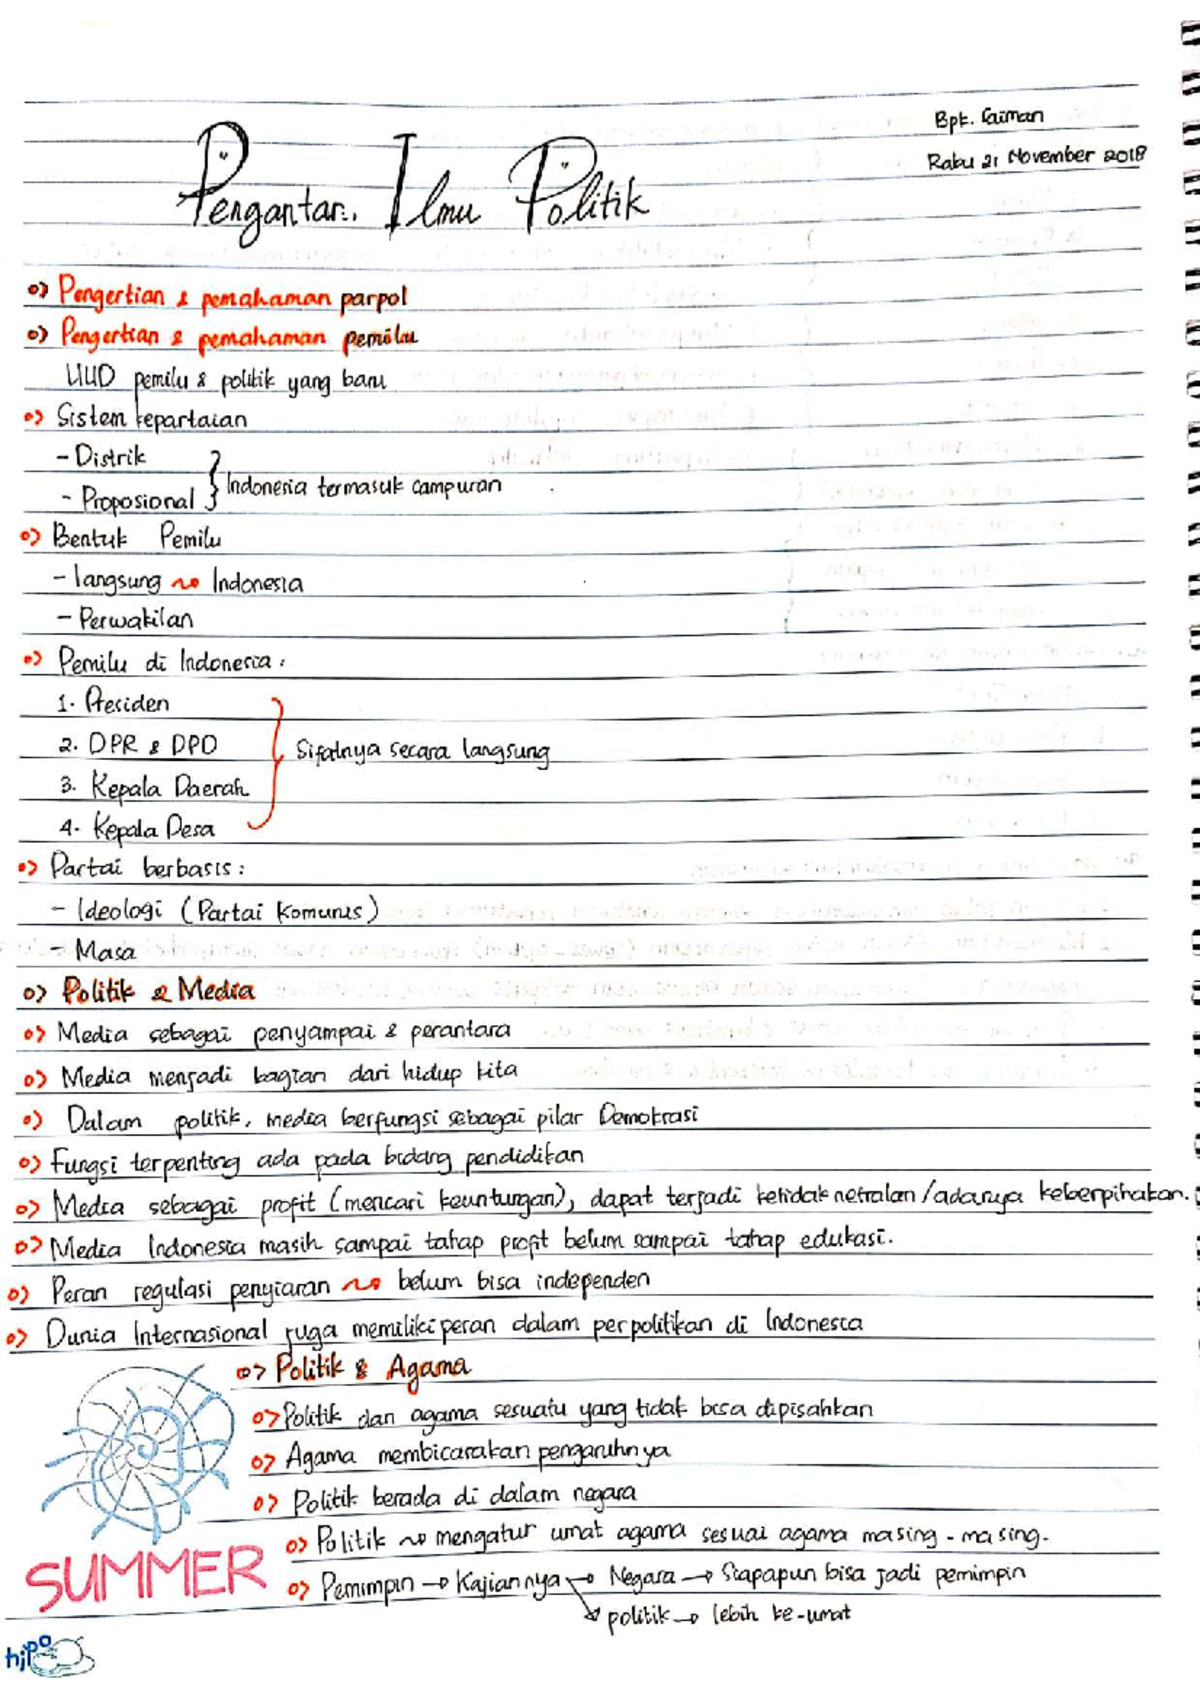 Bpk. Caiman
Rabu 21 November 2018
Pengantar Ilmu Politik
Pengertian & pemahaman parpol
Pengertian & pemahaman pemilu
UUD pemilu & politik yang baru
Sistem kepartaian
- Distrik
- Proposional } Indonesia termasuk campuran
Bentuk Pemilu
- langsung ~> Indonesia
- Perwakilan
Pemilu di Indonesia :
1. Presiden
2. DPR & DPD
3. Kepala Daerah
4. Kepala Desa
} Sifatnya secara langsung
Partai berbasis :
- Ideologi (Partai Komunis)
- Masa
Politik & Media
Media sebagai penyampai & perantara
Media menjadi bagian dari hidup kita
Dalam politik, media berfungsi sebagai pilar Demokrasi
Fungsi terpenting ada pada bidang pendidikan
Media sebagai profit (mencari keuntungan), dapat terjadi ketidaknetralan/adanya keberpihakan.
Media Indonesia masih sampai tahap profit belum sampai tahap edukasi.
Peran regulasi penyiaran ~> belum bisa independen
Dunia Internasional juga memiliki peran dalam perpolitikan di Indonesia
Politik & Agama
Politik dan agama sesuatu yang tidak bisa dipisahkan
Agama membicarakan pengaruhnya
Politik berada di dalam negara
Politik ~> mengatur umat agama sesuai agama masing-masing.
Pemimpin → Kajiannya → Negara → Siapapun bisa jadi pemimpin
politik → lebih ke-umat
SUMMER
hipo